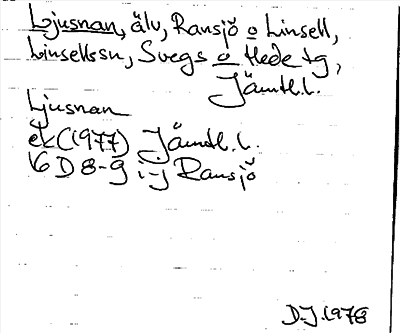 Ljusnan, älv, Ransjö o Linsell,
Linsells sn, Svegs o Hede tg,
Jämtl.l.
Ljusnan
ek (1977) Jämtl. l.
16 D 8-9 i-j Ransjö
D.J. 1978